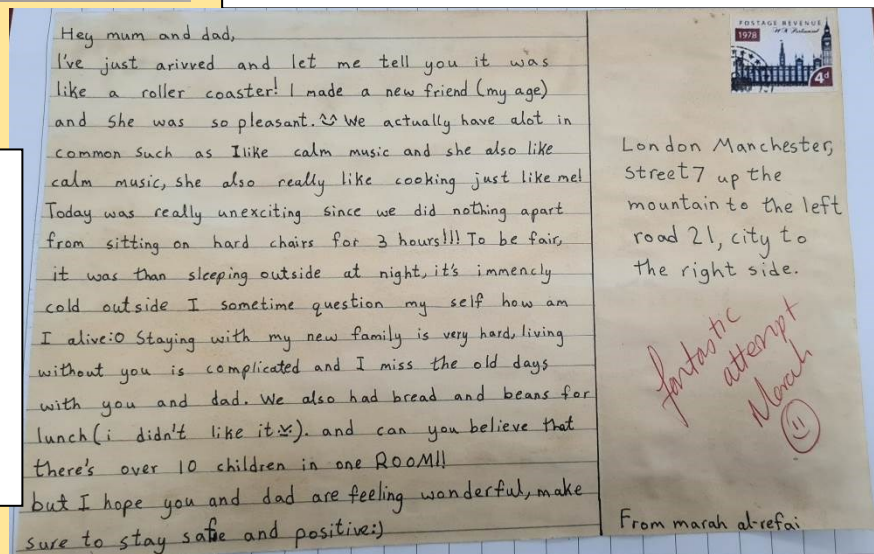 Hey mum and dad,
I've just arivved and let me tell you it was
like a roller coaster! I made a new friend (my age)
and She was so pleasant. We actually have alot in
common Such as Ilike calm music and she also like
calm music, she also really like cooking just like me!
Today was really unexciting since we did nothing apart
from sitting on hard chairs for 3 hours!!! To be fair,
it was than sleeping outside at night, it's immencly
cold outside I sometime question my self how am
I alive:O Staying with my new family is very hard, living
without you is complicated and I miss the old days
with you and dad. We also had bread and beans for
lunch (i didn't like it). and can you believe that
there's over 10 children in one ROOM!!
but I hope you and dad are feeling wonderful, make
sure to stay safe and positive:)
POSTAGE REVENUE
1978
4d
London Manchester,
Street 7 up the
mountain to the left
road 21, city to
the right side.
fantastic
attempt
Marah
From marah al-refai